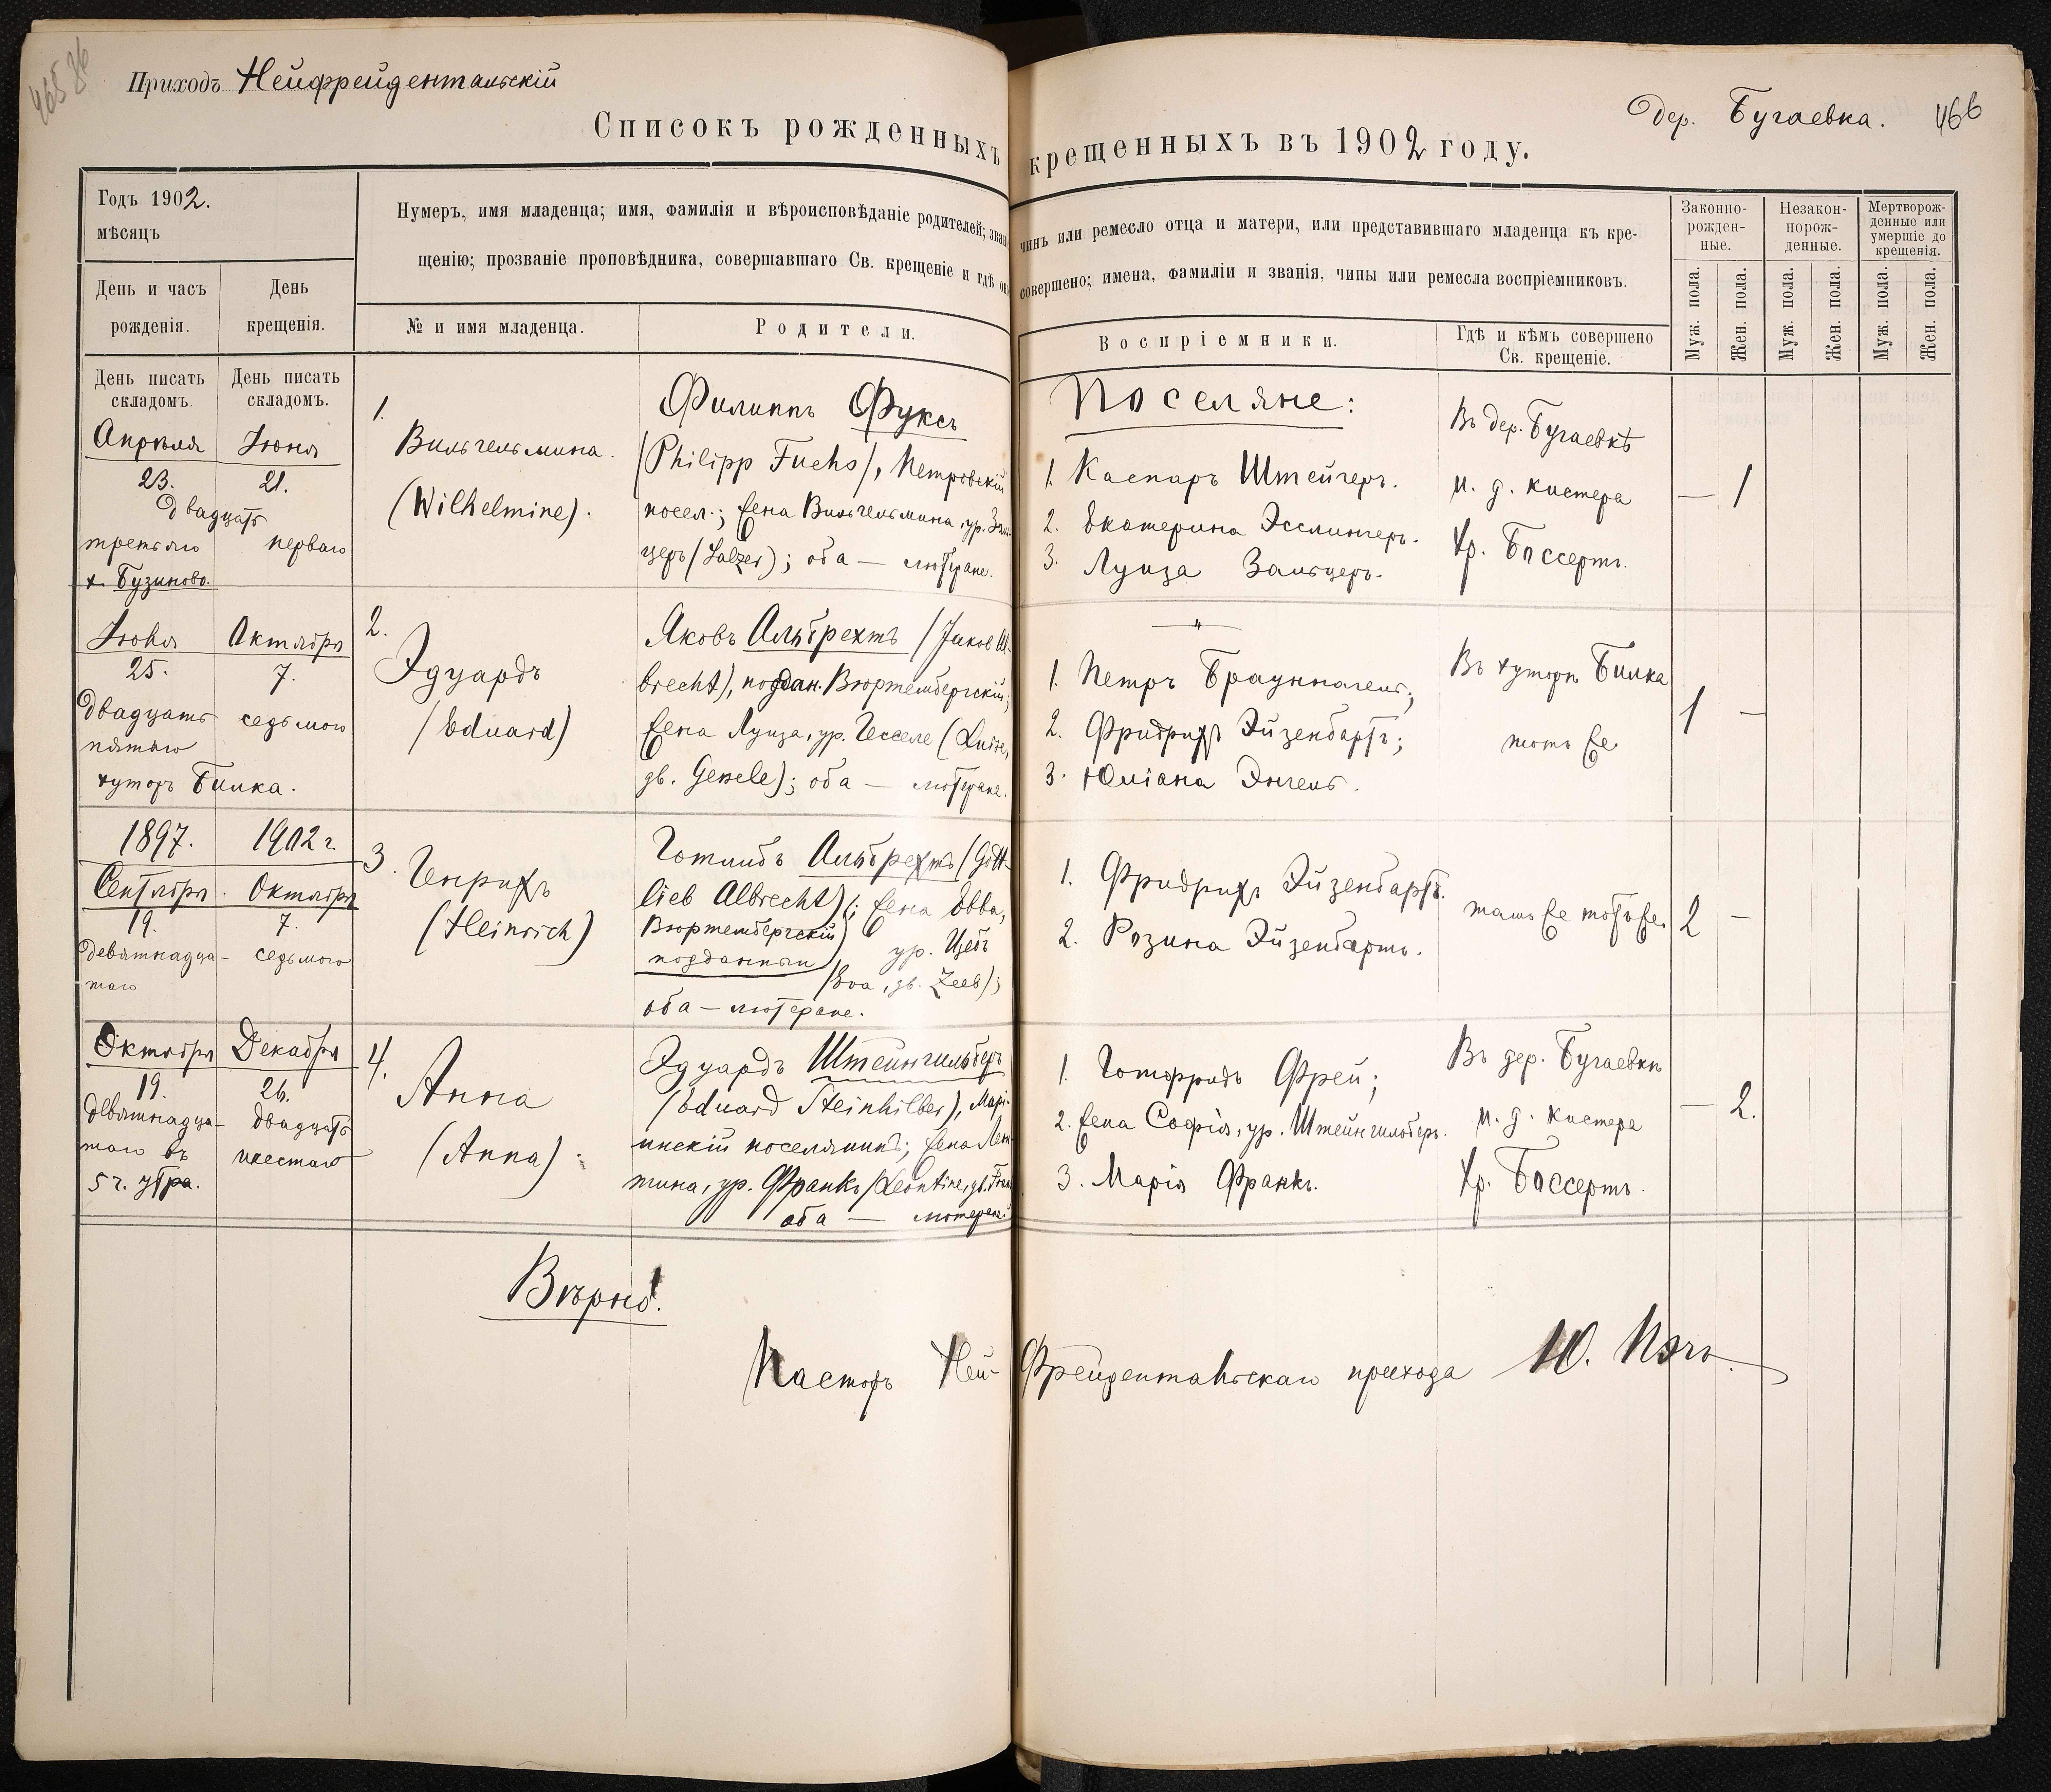 465 об
Приходъ Нейфрейдентальскій
Списокъ рожденныхъ
Годъ 1902.
мѣсяцъ
День и часъ рожденія.
День крещенія.
Нумеръ, имя младенца; имя, фамилія и вѣроисповѣданіе родителей; зван
щенію; прозваніе проповѣдника, совершавшаго Св. крещеніе и гдѣ оно
№ и имя младенца.
Родители.
День писать складомъ.
День писать складомъ.
Апрѣля
23.
двадцать
третьяго
х. Бузиново.
Іюня
21.
перваго
1.
Вильгельмина.
(Wilhelmine).
Филиппъ Фуксъ
(Philipp Fuchs), Петровскій
посел.; жена Вильгельмина, ур. Заль-
церъ (Salzer); оба — лютеране.
Іюня
25.
двадцать
пятаго
хуторъ Билка.
Октября
7.
седьмого
2.
Эдуардъ
(Eduard)
Яковъ Альбрехтъ (Jakob Al-
brecht), поддан. Вюртембергскій;
жена Луиза, ур. Гесселе (Luise,
gb. Gesele); оба — лютеране.
1897.
Сентября
19.
девятнадца-
таго
1902 г.
Октября
7.
седьмого
3.
Генрихъ
(Heinrich)
Готлибъ Альбрехтъ (Gott-
lieb Albrecht); жена Евва,
Вюртембергскій
подданный
ур. Цебъ
(Eva, gb. Zeeb);
оба — лютеране.
Октября
19.
девятнадца-
таго въ
5 ч. утра.
Декабря
26.
двадцать
шестого
4.
Анна
(Anna).
Эдуардъ Штейнгильберъ
(Eduard Steinhilber), Марі-
инскій поселянинъ; жена Леон-
тина, ур. Франкъ (Leontine, gb. Frank)
оба — лютеране.
Вѣрно!
Пасторъ Ней-
дер. Бугаевка. 466
крещенныхъ въ 1902 году.
чинъ или ремесло отца и матери, или представившаго младенца къ кре-
совершено; имена, фамиліи и званія, чины или ремесла воспріемниковъ.
Воспріемники.
Гдѣ и кѣмъ совершено Св. крещеніе.
Законно-
рожден-
ные.
Незакон-
норож-
денные.
Мертворож-
денные или
умершіе до
крещенія.
Муж. пола.
Жен. пола.
Муж. пола.
Жен. пола.
Муж. пола.
Жен. пола.
Поселяне:
1. Каспаръ Штейгеръ.
2. Екатерина Эсслингеръ.
3. Луиза Зальцеръ.
Въ дер. Бугаевкѣ
и. д. кистера
Хр. Боссертъ.
— 1
〃
1. Петръ Брауннагель;
2. Фридрихъ Эйзенбартъ;
3. Юліана Энгель.
Въ хуторѣ Билка
тотъ же
1 —
1. Фридрихъ Эйзенбартъ.
2. Розина Эйзенбартъ.
тамъ же тотъ же.
2 —
1. Готфридъ Фрей;
2. жена Софія, ур. Штейнгильберъ.
3. Марія Франкъ.
Въ дер. Бугаевкѣ
и. д. кистера
Хр. Боссертъ.
— 2.
Фрейдентальскаго прихода Ю. Пэчъ